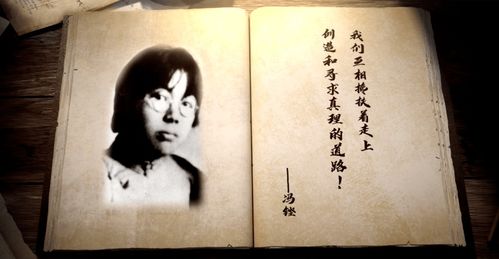 我们互相搀扶着走上
创造和寻求真理的道路！
——冯铿